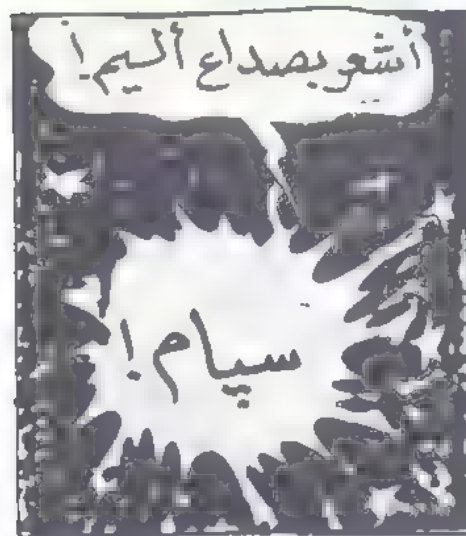 أشعر بصداع أليم!
سپام!